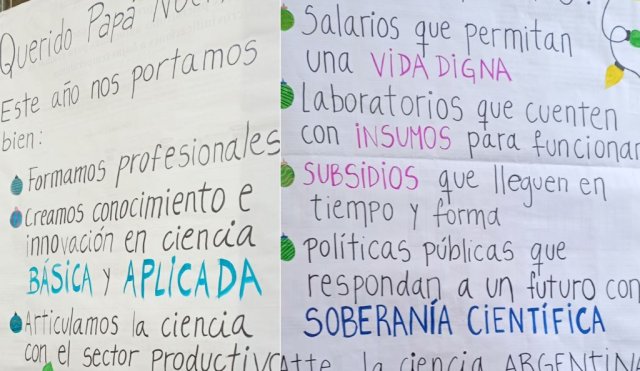 Querido Papá
Este año nos portamos
bien:
Formamos profesionales
Creamos conocimiento e
innovación en ciencia
BÁSICA y APLICADA
Articulamos la ciencia
con el sector productiv
Salarios que permitan
una VIDA DIGNA
Laboratorios que cuenten
con INSUMOS para funcionar
SUBSIDIOS que lleguen en
tiempo y forma
políticas públicas que
respondan a un futuro con
SOBERANÍA CIENTÍFICA
Atte la ciencia ARGENTINA